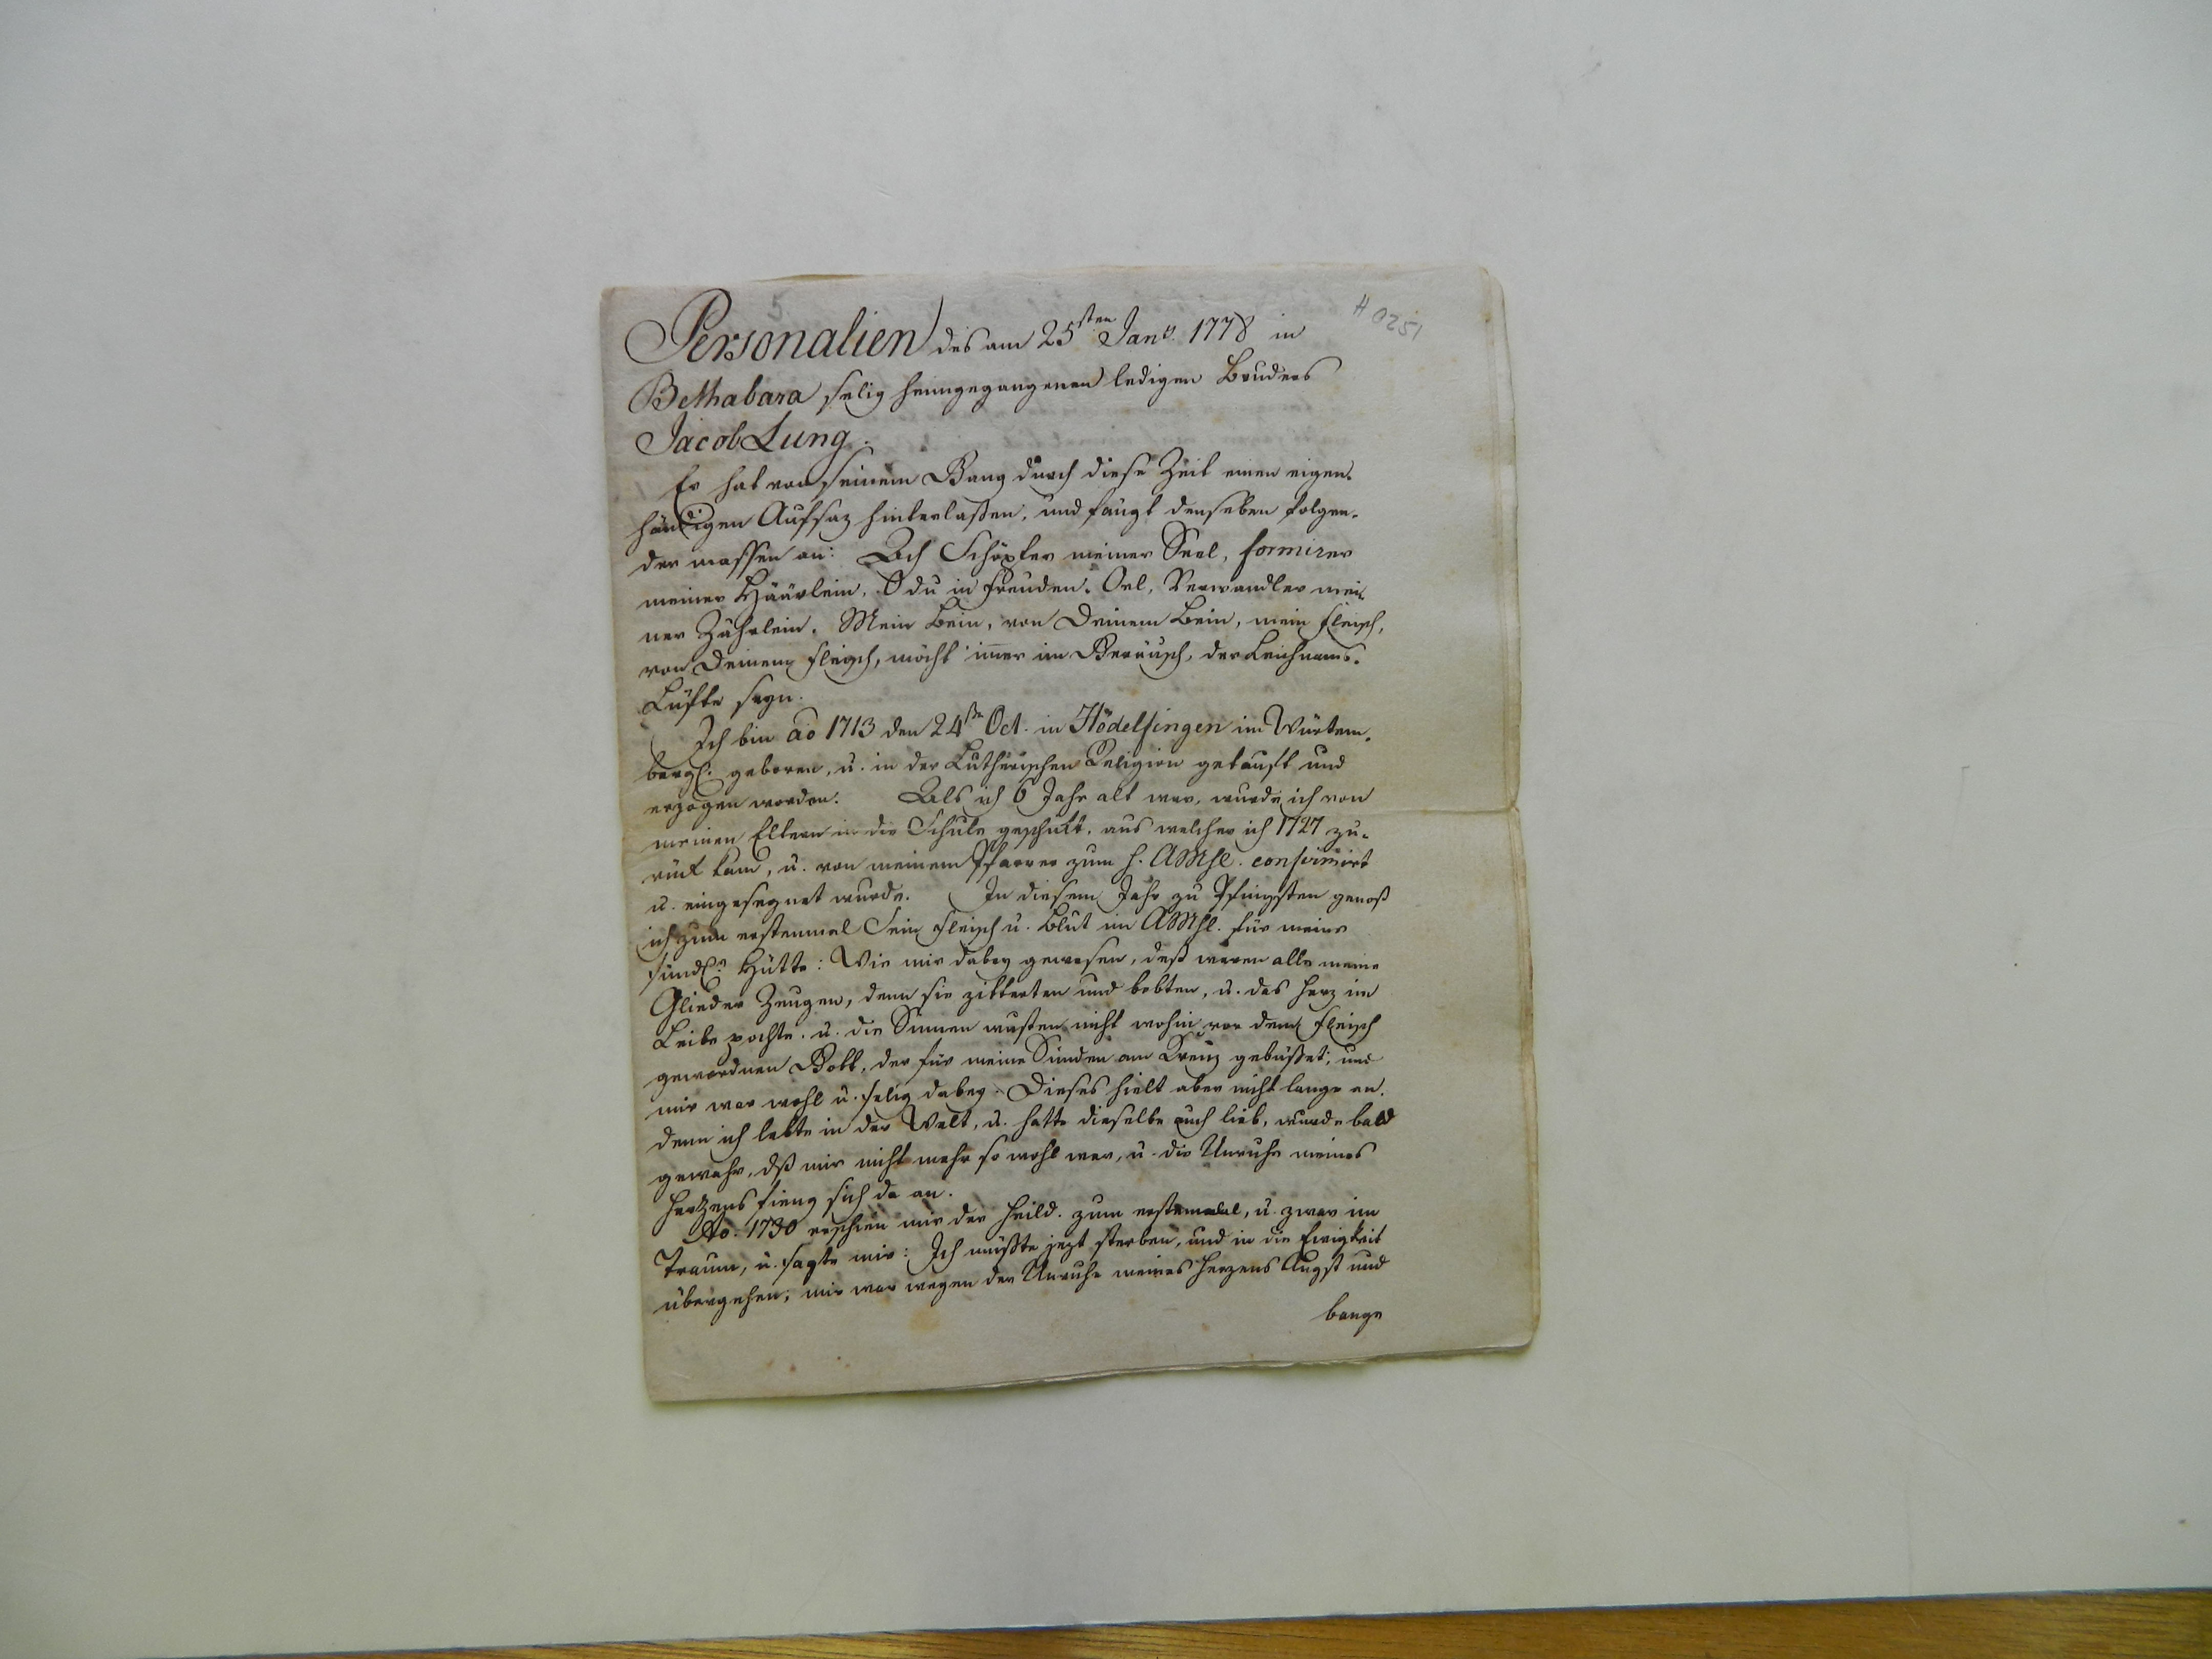 5
# 0251
Personalien des am 25sten Janr. 1778 in
Bethabara selig heimgegangenen ledigen Bruders
Jacob Lung.
Er hat von seinem Gang durch diese Zeit einen eigen-
händigen Aufsaz hinterlaßen, und fängt denselben folgen-
der massen an: Ach Schöpfer meiner Seel, formirer
meiner Häärlein, O du in Freuden-Oel, Verwandler mei-
ner Zährlein, Mein Bein, von Deinem Bein, mein Fleisch,
von Deinem Fleisch, möcht imer im Geräusch, der Leichnams-
Lüfte seyn.
Ich bin ao 1713 den 24sten Oct. in Hödelfingen im Würtem-
bergl. geboren, u. in der Lutherischen Religion getauft und
erzogen worden. Als ich 6 Jahr alt war, wurde ich von
meinen Eltern in die Schule geschickt, aus welcher ich 1727 zu-
rück kam, u. von meinem Pfarrer zum h. AMhl. confirmirt
u. eingesegnet wurde. In diesem Jahr zu Pfingsten genoß
ich zum erstenmal Sein Fleisch u. Blut im AMhl. für meine
sündl. Hütte: Wie mir dabey gewesen, deß waren alle meine
Glieder Zeugen, denn sie zitterten und bebten, u. das Herz im
Leibe pochte, u. die Sinnen wusten nicht wohin vor dem Fleisch
gewordnen Gott, der für meine Sünden am Creuz gebüßet; und
mir war wohl u. selig dabey. Dieses hielt aber nicht lange an,
denn ich lebte in der Welt, u. hatte dieselbe auch lieb, wurde bald
gewahr, dß mir nicht mehr so wohl war, u. die Unruhe meines
Herzens fieng sich da an.
Ao. 1730 erschien mir der Heild. zum erstenmal, u. zwar im
Traum, u. sagte mir: Ich müßte jezt sterben, und in die Ewigkeit
übergehen; mir war wegen der Unruhe meines Herzens Angst und
bange